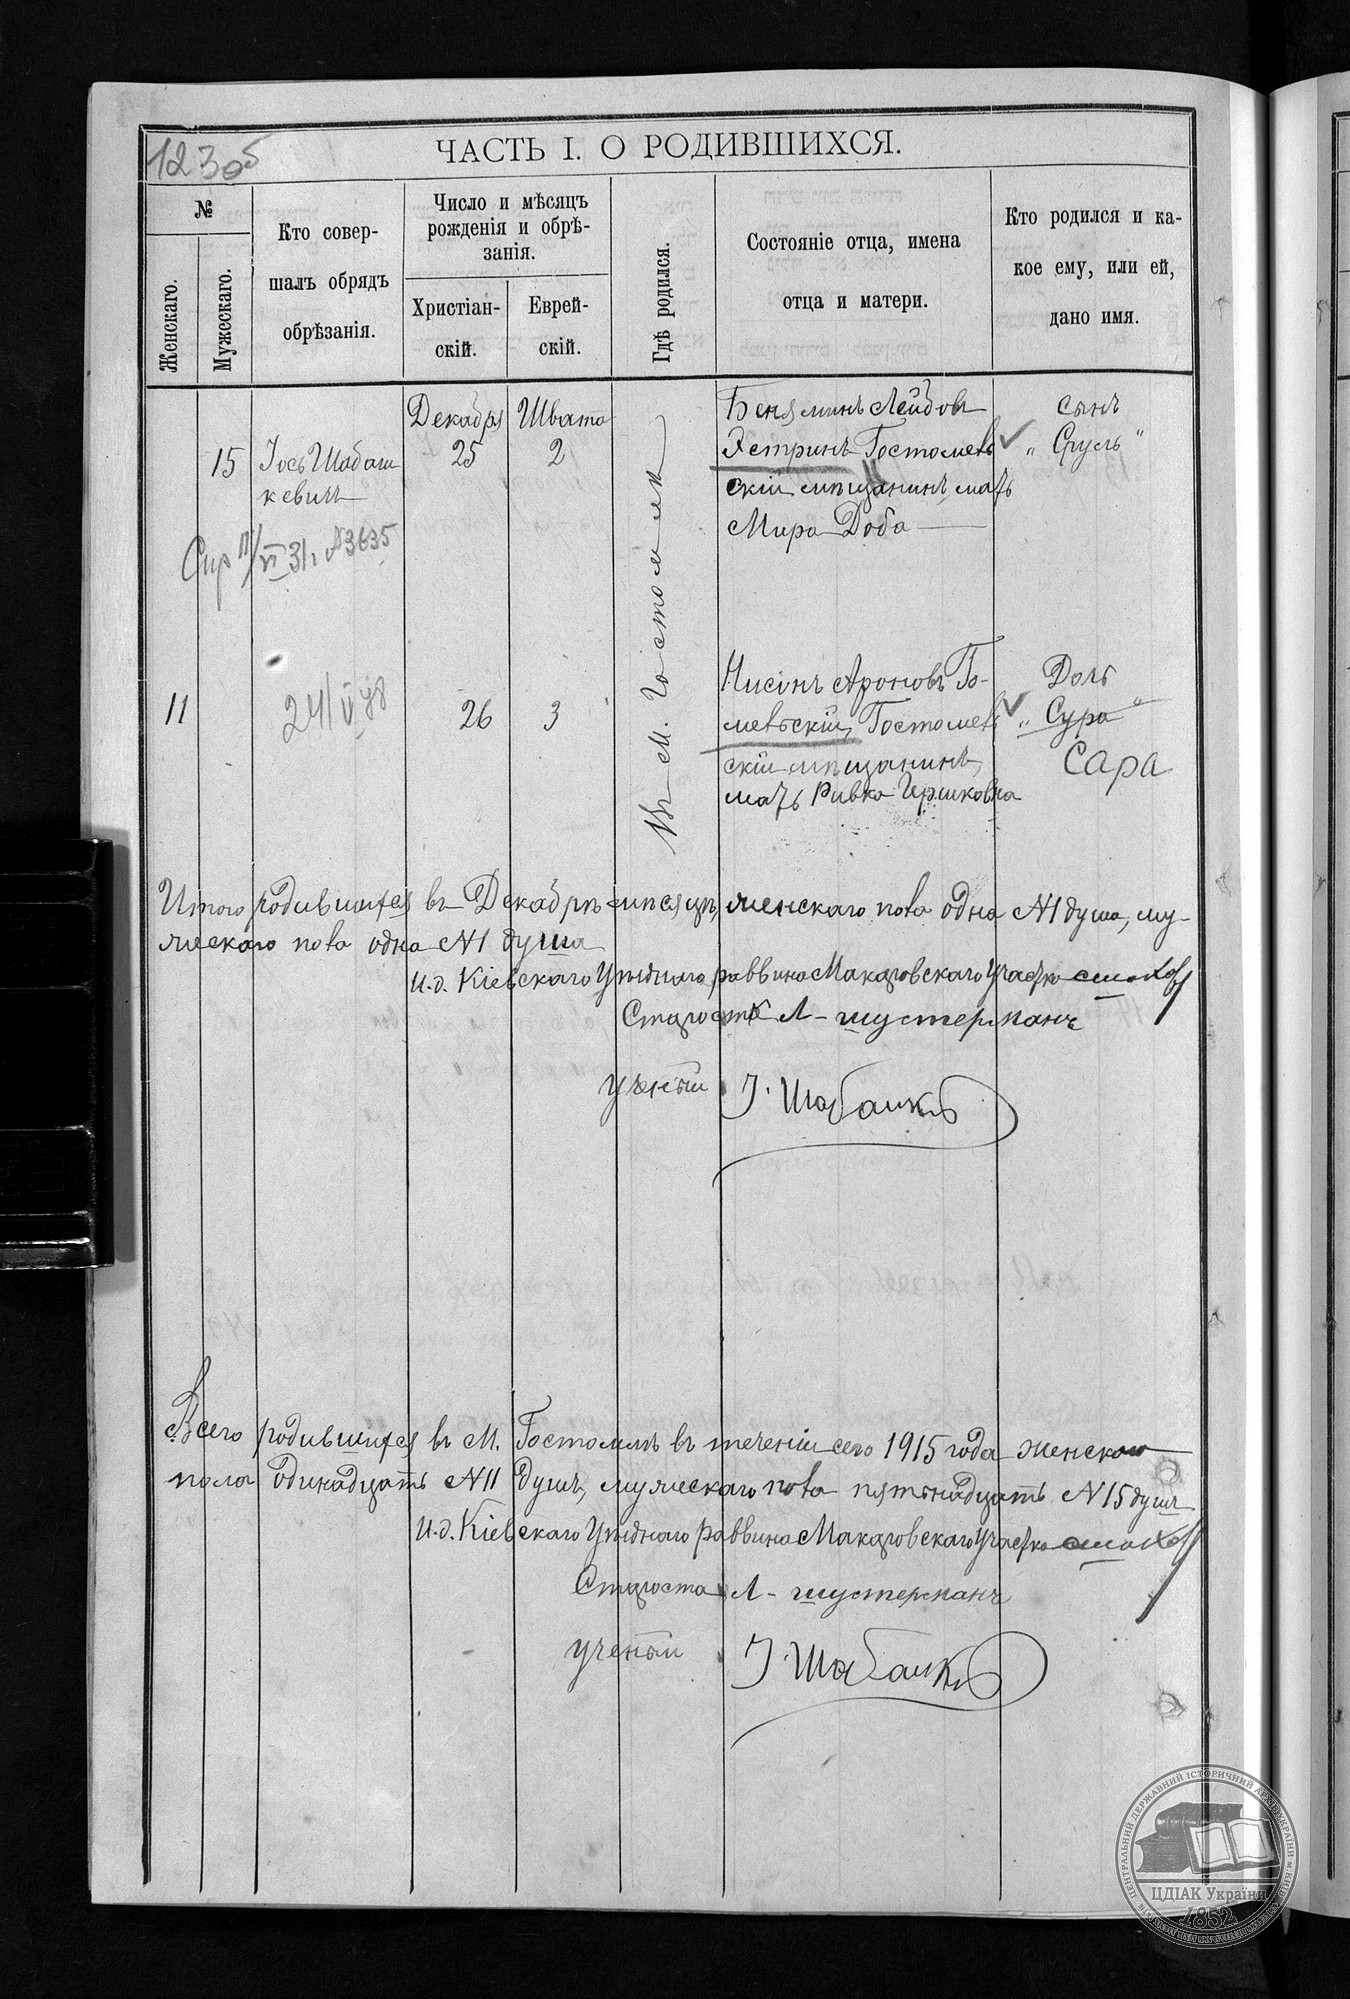 123об
ЧАСТЬ I. О РОДИВШИХСЯ.
№
Женскаго.
Мужескаго.
Кто совер-
шалъ обрядъ
обрѣзанія.
Число и мѣсяцъ
рожденія и обрѣ-
занія.
Христіан-
скій.
Еврей-
скій.
Гдѣ родился.
Состояніе отца, имена
отца и матери.
Кто родился и ка-
кое ему, или ей,
дано имя.
15
Іось Шабаш
кевичъ
Декабря
25
Швата
2
Въ М. Гостомлѣ
Беняминъ Лейбовъ
Эстринъ Гостомель
скій мѣщанинъ, мать
Мира Доба
сынъ
„ Сруль "
VI 31г №3635
11
24/V 98
26
3
Нисонъ Ароновъ Го-
мельскій, Гостомель
скій мѣщанинъ,
мать Ривка Гершковна
Дочь
„ Сура "
Сара
Итого родившихся въ Декабрѣ мѣсяцѣ, женскаго пола одна №1 душа, му-
жескаго пола одна №1 душа
И.д. Кіевскаго Уѣзднаго раввина Макаровскаго Участка
Староста Л- шустерманъ
ученый І. Шабашк
Всего родившихся въ М. Гостомлѣ въ теченіи сего 1915 года женскаго
пола одинадцать №11 душъ, мужескаго пола пятьнадцать №15 душъ
И.д. Кіевскаго Уѣзднаго раввина Макаровскаго Участка
Староста Л- шустерманъ
ученый І. Шабашк
ЦЕНТРАЛЬНИЙ ДЕРЖАВНИЙ ІСТОРИЧНИЙ АРХІВ УКРАЇНИ м. КИЇВ
ЦДІАК України
1852